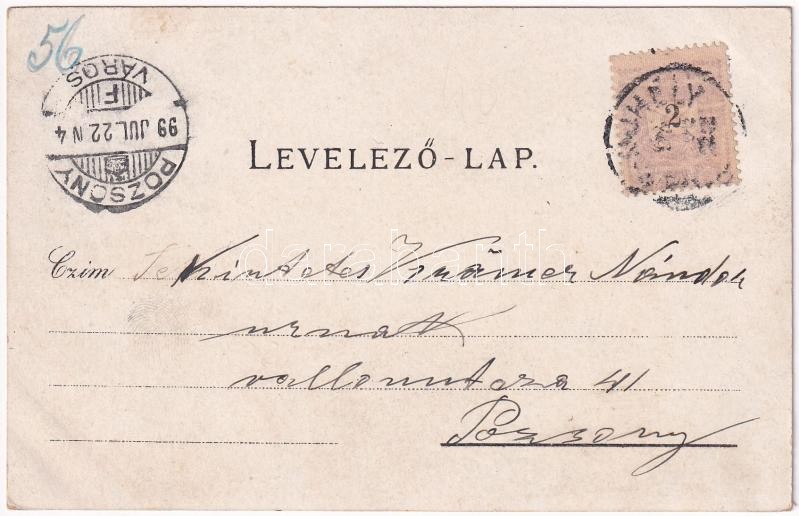 56
POZSONY
99 JUL.22 N 4
F
VÁROS
2
LEVELEZŐ-LAP.
Czim Tekintetes Krämer Nándor
urnak
41
Pozsony
darabanth